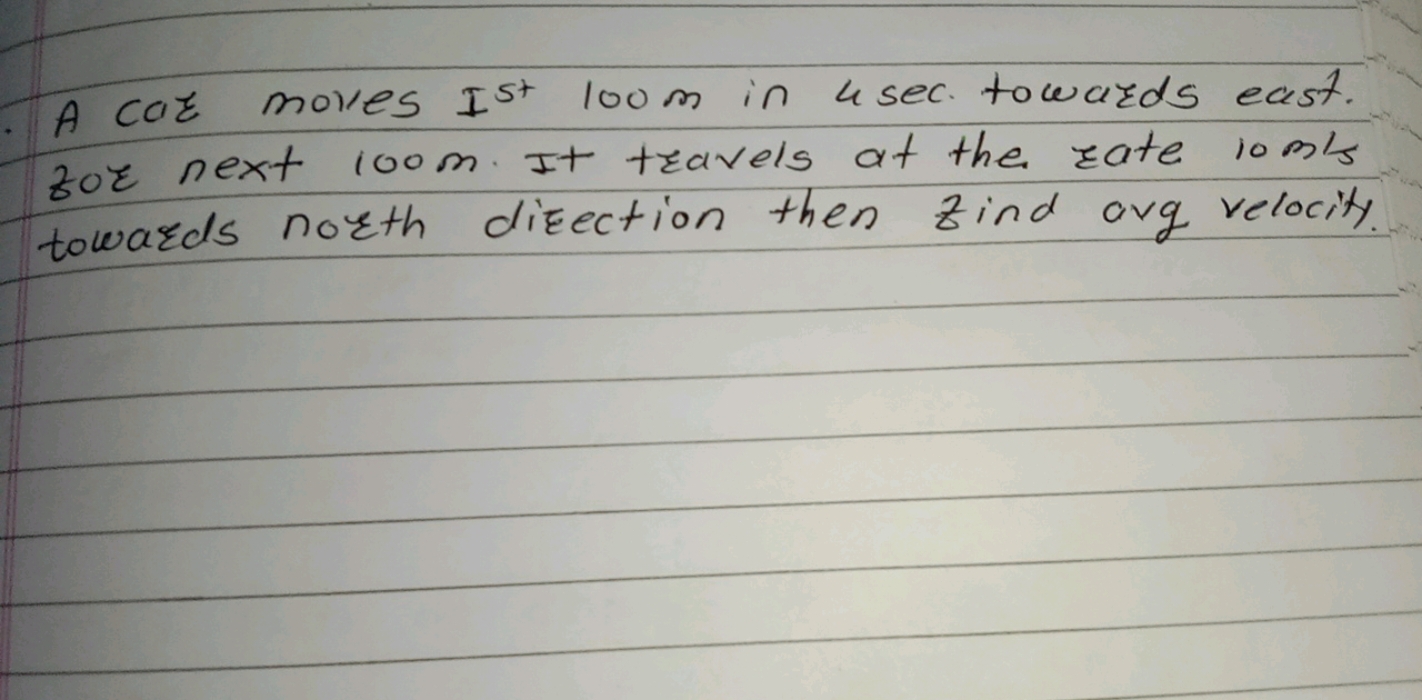 A car moves Ist 100 m in 4 sec. towards east.
for next 100 m. It travels at the rate 10 m/s
towards north direction then find avg velocity.